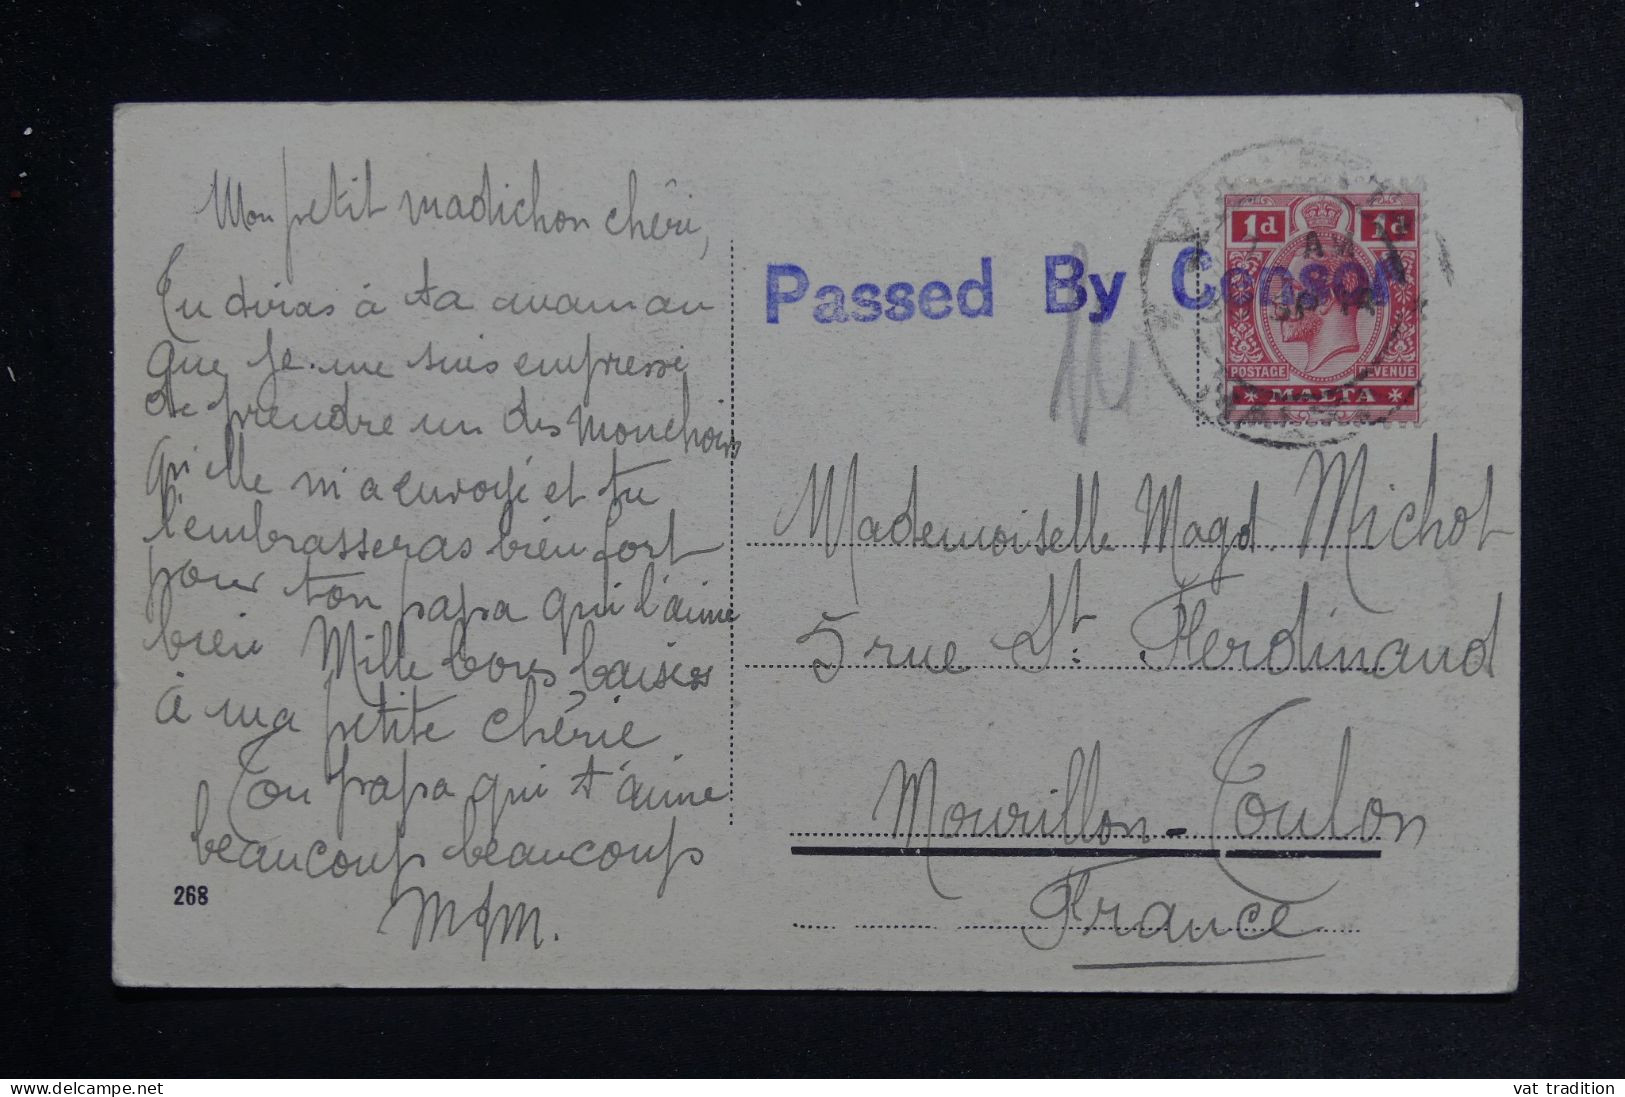 Mon petit madichon chéri,
Tu diras à ta avaman
que je me suis empressé
de prendre un des mouchoirs
qu'elle m'a envoyé et tu
l'embrasseras bien fort
pour ton papa qui l'aime
bien Mille bons baisers
à ma petite chérie
Ton papa qui t'aime
beaucoup beaucoup
268
Passed By Censor
1d 1d
POSTAGE REVENUE
MALTA
Mademoiselle Magd. Michot
5 rue St. Ferdinand
Mourillon - Toulon
France
vat tradition